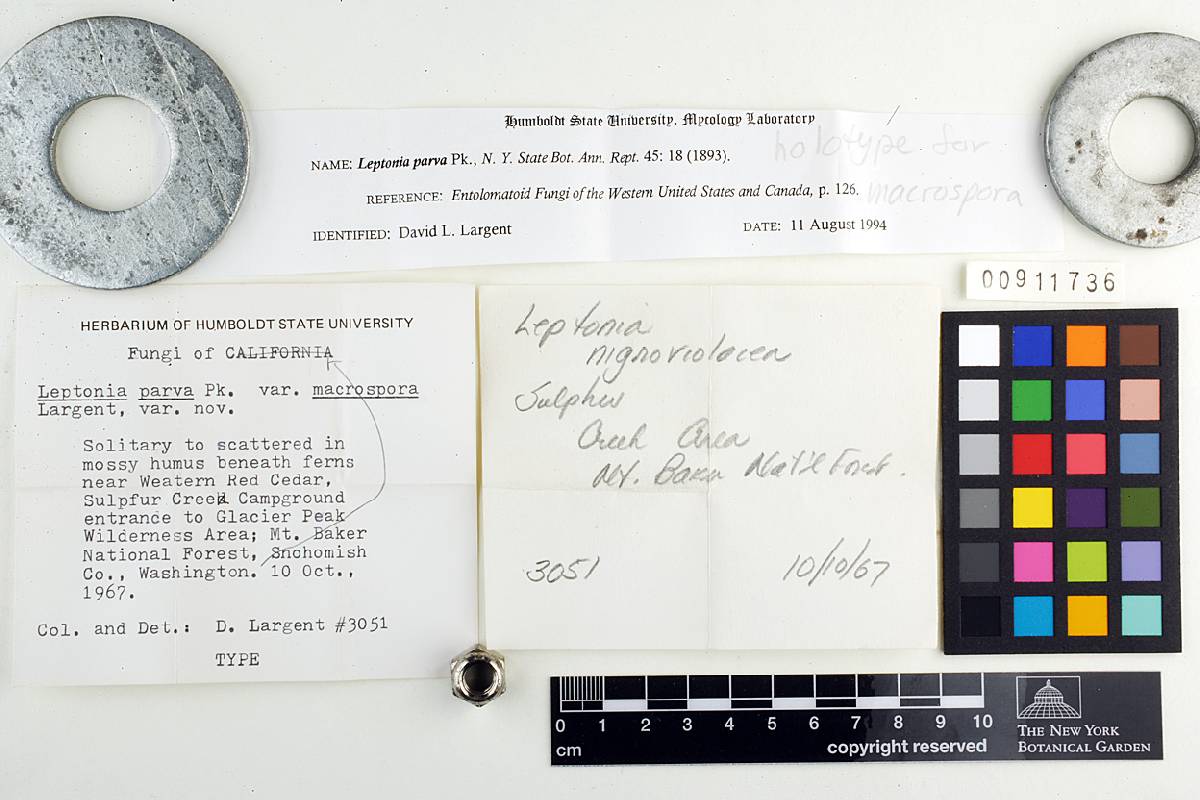 Humboldt State University, Mycology Laboratory
holotype for
macrospora
NAME: Leptonia parva Pk., N. Y. State Bot. Ann. Rept. 45: 18 (1893).
REFERENCE: Entolomatoid Fungi of the Western United States and Canada, p. 126.
IDENTIFIED: David L. Largent DATE: 11 August 1994
00911736
HERBARIUM OF HUMBOLDT STATE UNIVERSITY
Fungi of CALIFORNIA
Leptonia parva Pk. var. macrospora
Largent, var. nov.
Solitary to scattered in
mossy humus beneath ferns
near Weatern Red Cedar,
Sulpfur Creek Campground
entrance to Glacier Peak
Wilderness Area; Mt. Baker
National Forest, Snohomish
Co., Washington. 10 Oct.,
1967.
Col. and Det.: D. Largent #3051
TYPE
Leptonia
nigroviolacea
Sulphur
Creek Area
Mt. Baker Nat'l Forest.
3051 10/10/67
0 1 2 3 4 5 6 7 8 9 10
cm
copyright reserved
THE NEW YORK
BOTANICAL GARDEN